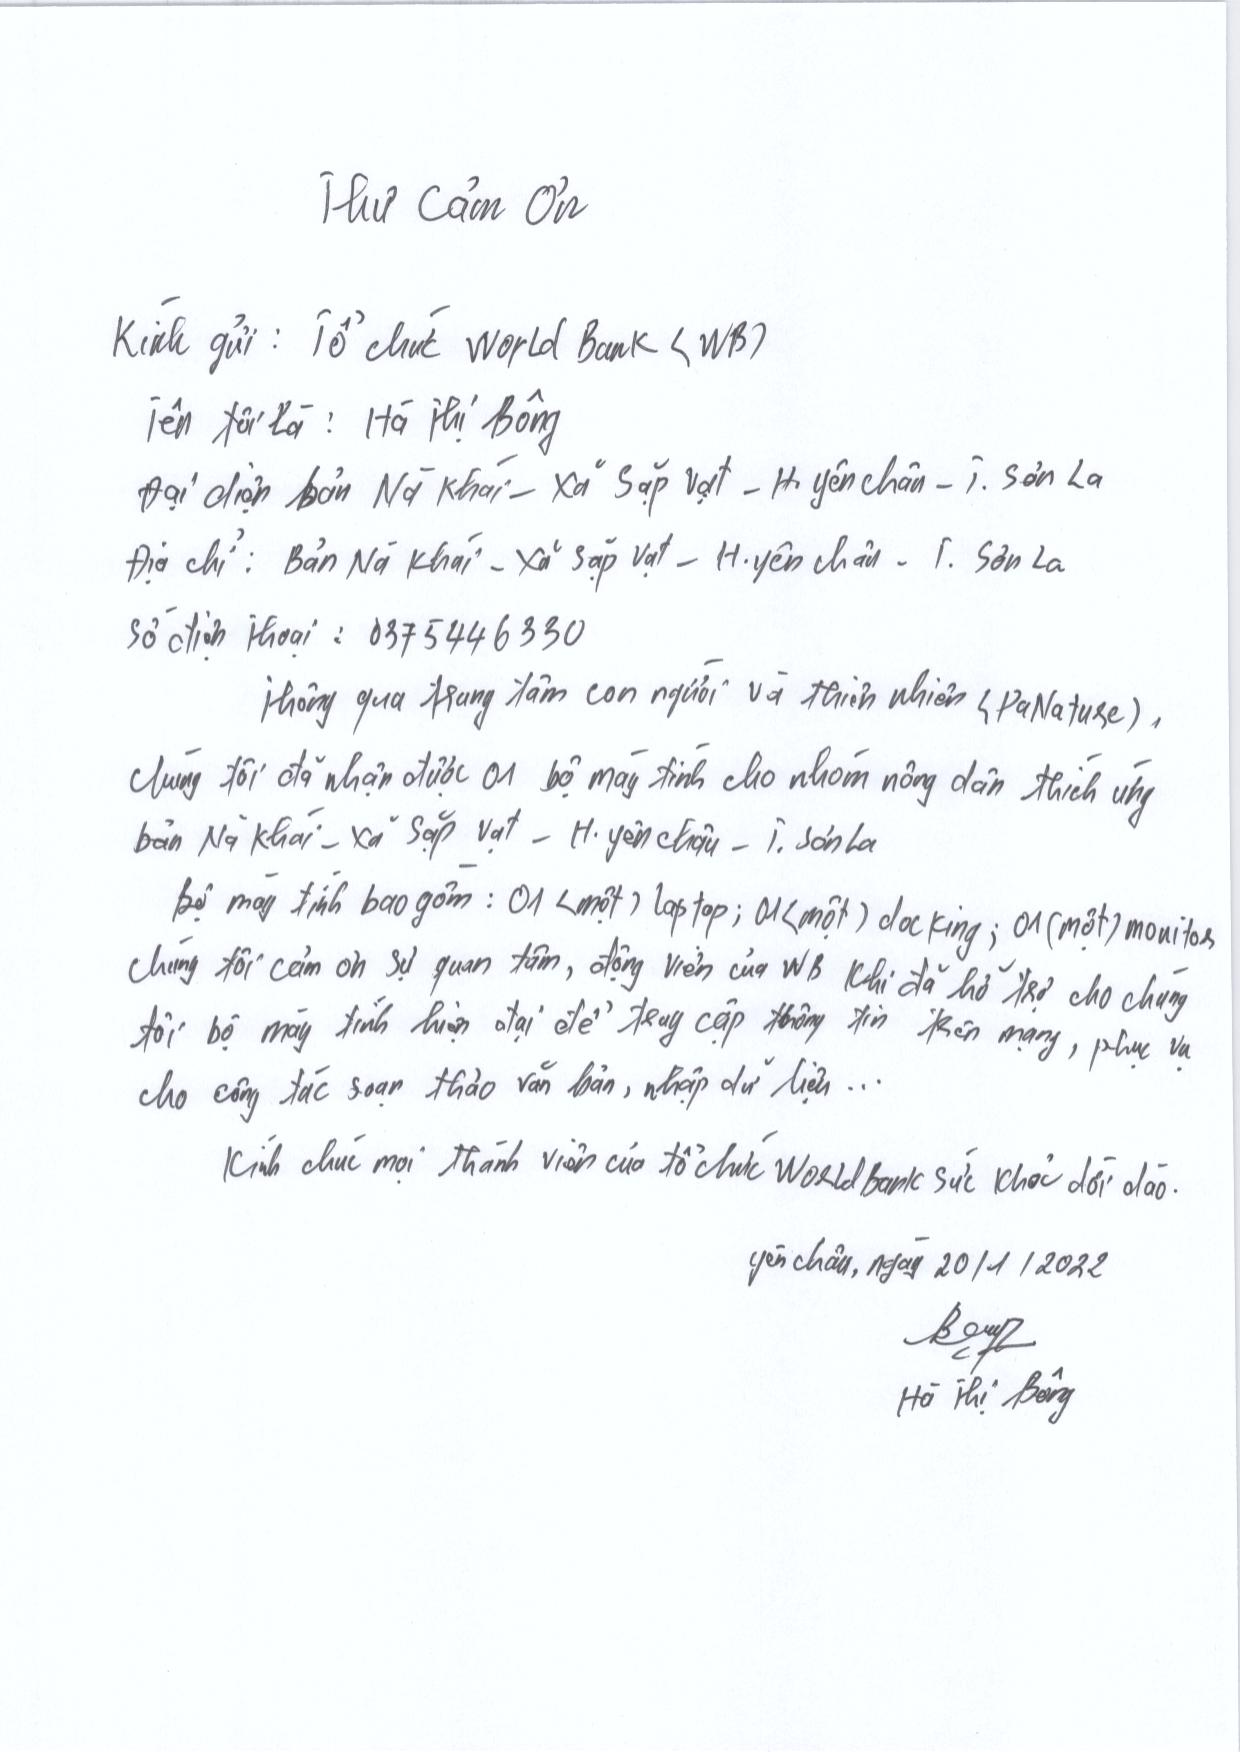 Thư Cảm Ơn
Kính gửi: Tổ chức World Bank (WB)
Tên tôi là: Hà Thị Bông
Đại diện bản Nà Khái - Xã Sặp Vạt - H. Yên Châu - T. Sơn La
Địa chỉ: Bản Nà Khái - Xã Sặp Vạt - H. Yên Châu - T. Sơn La
Số điện thoại: 0375446330
Thông qua trung tâm con người và thiên nhiên (PaNature),
chúng tôi đã nhận được 01 bộ máy tính cho nhóm nông dân thích ứng
bản Nà Khái - Xã Sặp Vạt - H. Yên Châu - T. Sơn La
Bộ máy tính bao gồm: 01 (một) laptop; 01 (một) docking; 01 (một) monitor
chúng tôi cảm ơn sự quan tâm, động viên của WB khi đã hỗ trợ cho chúng
tôi bộ máy tính hiện đại để truy cập thông tin trên mạng, phục vụ
cho công tác soạn thảo văn bản, nhập dữ liệu ...
Kính chúc mọi thành viên của tổ chức World Bank sức khỏe dồi dào.
Yên Châu, ngày 20/1/2022
Bông
Hà Thị Bông